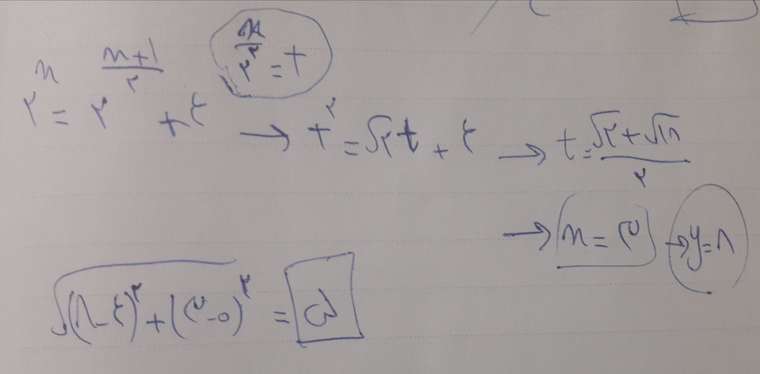 ۲^(x/۲) = t
۲^x = ۲^((x+۱)/۲) + ۴ → t^۲ = √۲ t + ۴ → t = (√۲ + √۱۸)/۲
→ x = ۳ → y = ۸
√((۸-۴)^۲ + (۳-۰)^۲) = ۵